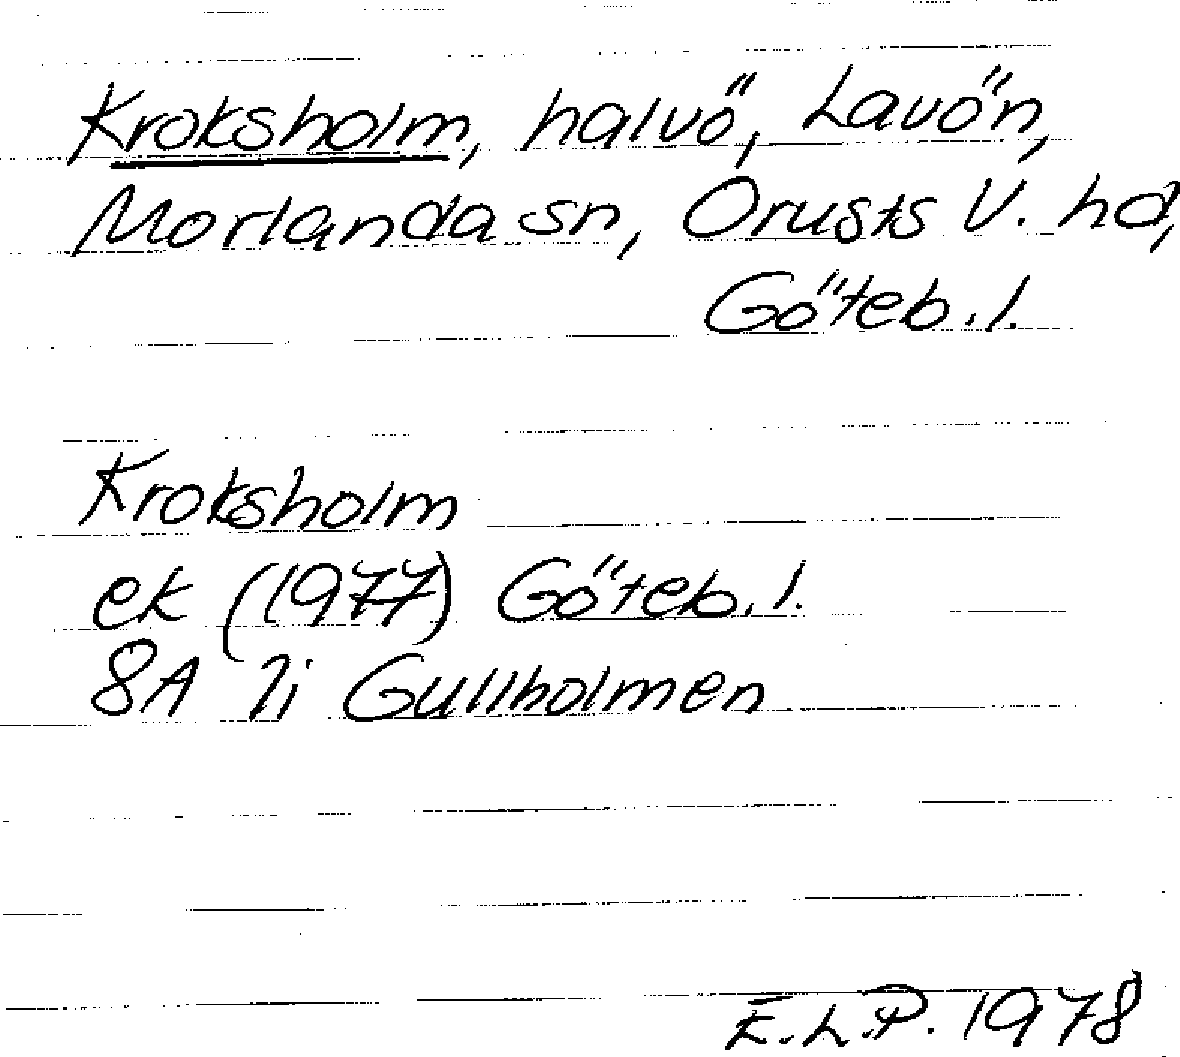 Kroksholm, halvö, Lavön,
Morlanda sn, Orusts V. hd,
Göteb. l.
Kroksholm
ek (1977) Göteb. l.
8A 7i Gullholmen
E.L.P. 1978